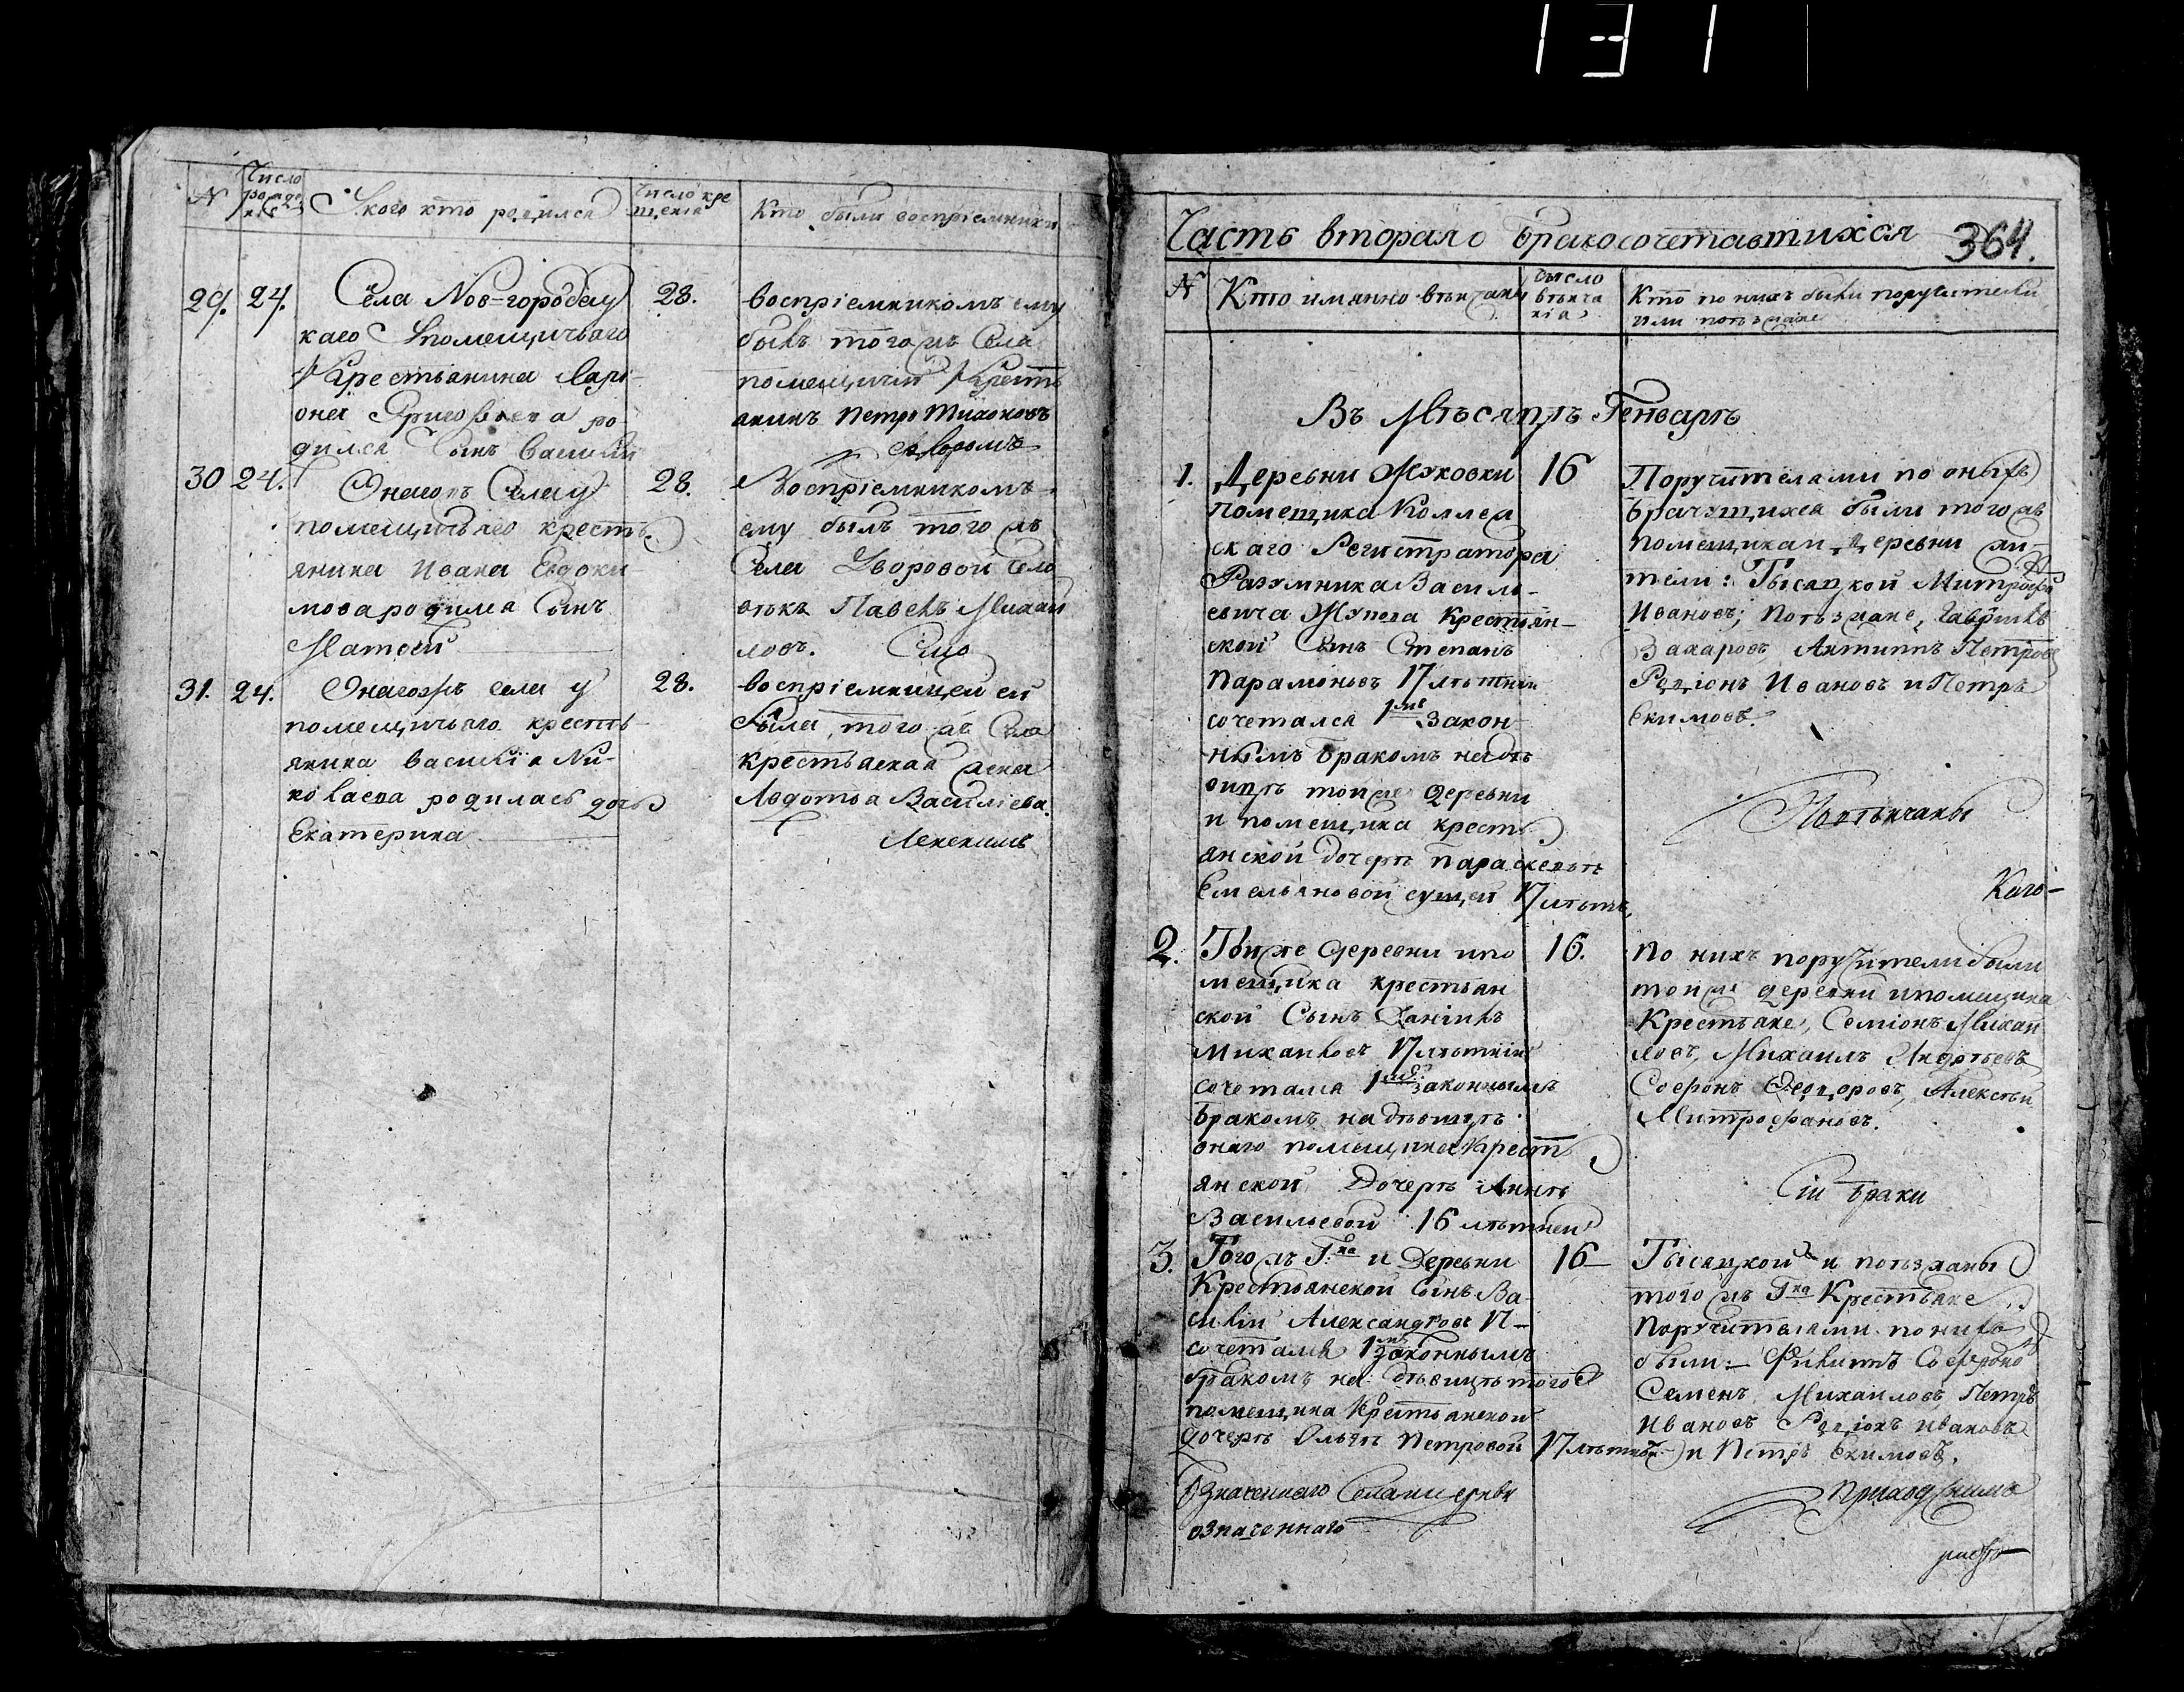 N
Число рожде нія
У кого кто родился
Число кре щенія
Кто были воспріемники
29. 24.
Села Нов-городка у
каго помещичьяго
Крестьянина Ларі-
она Григорьева ро-
дился Сынъ Василій
28.
воспріемникомъ ему
былъ того жъ Села
помещичій Кресть
янинъ Петръ Тихоновъ
30 24.
Онагожъ Села у
помещичьяго кресть
янина Ивана Евдоки
мова родился Сынъ
Матвей
28.
Воспріемникомъ
ему былъ того жъ
Села Дворовой Чело
векъ Павелъ Михай
ловъ.
31. 24.
Онагожъ села у
помещичьяго кресть-
янина Василія Ни-
колаева родилась дочь
Екатерина
28.
воспріемницей ей
была того жъ Села
крестьянская жена
Авдотья Василіева.
Часть вторая о бракосочетавшихся 364.
N
Кто имянно венчаны
Число венча нія
Кто по нихъ были поручители
или поезжане
Въ Месяце Генваре
1.
Деревни Жуковки
помещика Коллеж
скаго Регистратора
Разумника Василь-
евича крестьян-
ской Сынъ Степанъ
Парамоновъ 17 летній
сочетался 1мъ закон-
нымъ бракомъ на де
вице тойже деревни
и помещика кресть
янской дочере Параскеве
Емельяновой сущей 17 летъ
16
Поручителами по оныхъ
брачущихся были того жъ
помещика и деревни жи-
тели: Тысяцкой Митрофа
Ивановъ; Поезжане, Гаврилъ
Захаровъ, Антипъ Петровъ
Родіонъ Ивановъ и Петръ
Екимовъ.
Повенчаны
Каго-
2.
Тойже деревни и по
мещика крестьян
ской Сынъ Данілъ
Михайловъ 17 летній
сочетался 1мъ законнымъ
бракомъ на девице
онаго помещика Крест
янской Дочере Анне
Васильевой 16 летней
16.
По нихъ поручители были
тойже деревни и помещика
Крестьяне, Семіонъ Михай
ловъ, Михаилъ Андреевъ
Софронъ Феодоровъ, Алексей
Митрофановъ.
Сіи браки
3.
Того жъ Г:на и Деревни
Крестьянской Сынъ Ва-
силій Александровъ 17-
сочетался 1мъ законнымъ
бракомъ на девице того
помещика Крестьянской
дочере Ольге Петровой 17 летней
16
Тысяцкой и поезжаны
того жъ Гна Крестьяне
Поручителями по нихъ
были: Филиппъ Софроно
Семенъ Михаиловъ Петръ
Ивановъ Родіонъ Ивановъ
и Петръ Екимовъ.
Означеннаго Села
означеннаго